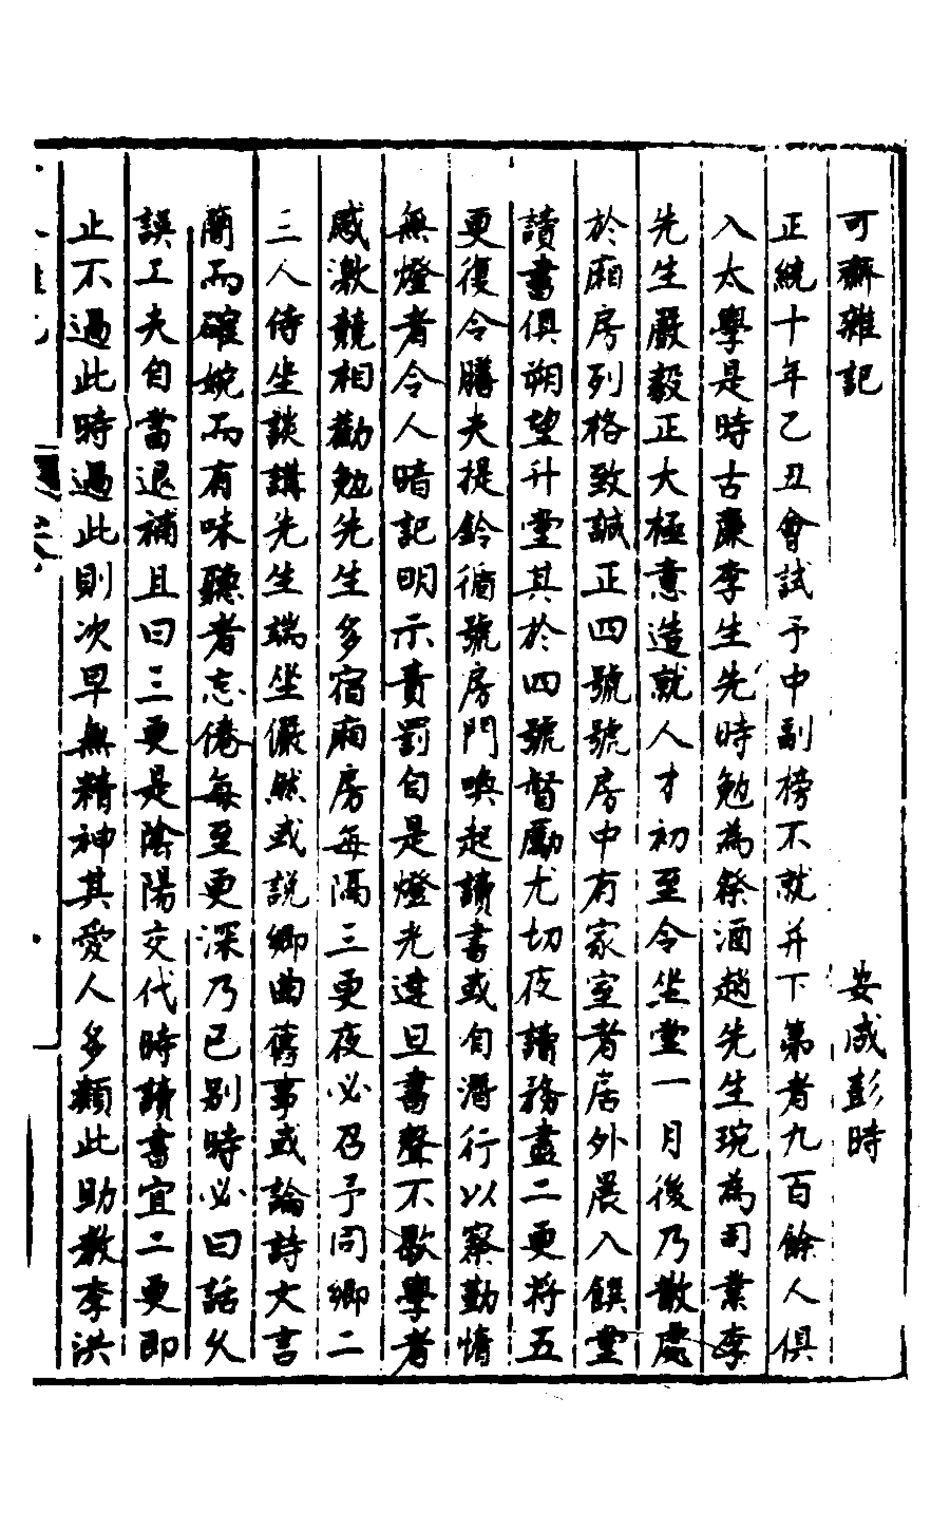 可齋雜記　安成彭時
正統十年乙丑會試予中副榜不就并下第者九百餘人俱
入太學是時古廉李生先時勉為祭酒趙先生琬為司業李
先生嚴毅正大極意造就人才初至令坐堂一月後乃散處
於廂房列格致誠正四號號房中有家室者居外晨入饌堂
讀書俱朔望升堂其於四號督勵尤切夜讀務盡二更將五
更復令膳夫提鈴循號房門喚起讀書或自潛行以察勤惰
無燈者令人暗記明示責罰自是燈光達旦書聲不歇學者
感激競相勸勉先生多宿廂房每隔三更夜必召予同鄉二
三人侍坐談講先生端坐儼然或說鄉曲舊事或論詩文言
簡而確婉而有味聽者忘倦每至更深乃已別時必曰話久
誤工夫自當退補且曰三更是陰陽交代時讀書宜二更即
止不過此時過此則次早無精神其愛人多類此助教李洪